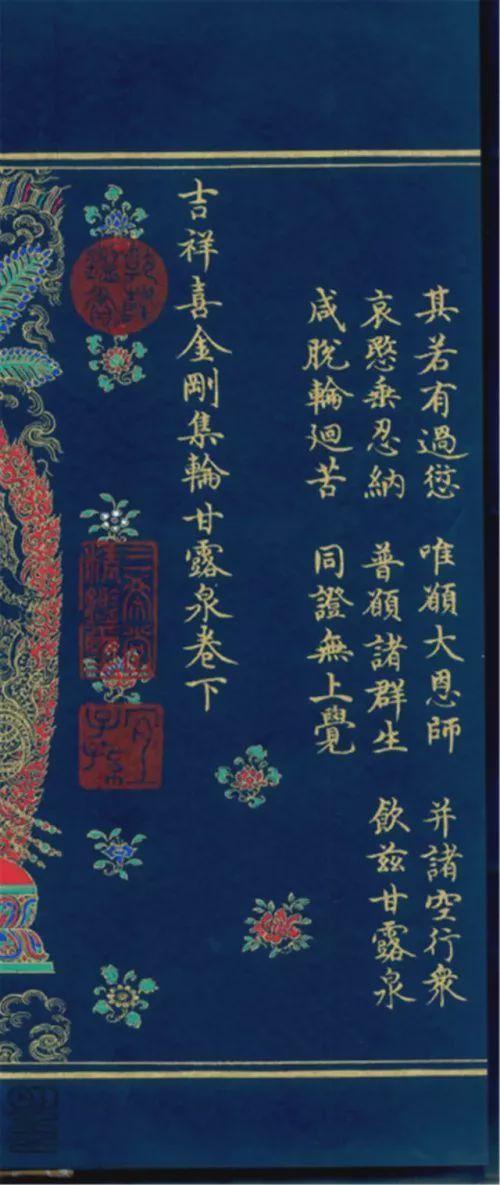 其若有過愆 唯願大恩師 并諸空行衆
哀愍垂忍納 普願諸群生 飲兹甘露泉
咸脫輪迴苦 同證無上覺
吉祥喜金剛集輪甘露泉卷下
乾隆鑑賞
三希堂精鑑璽
宜子孫